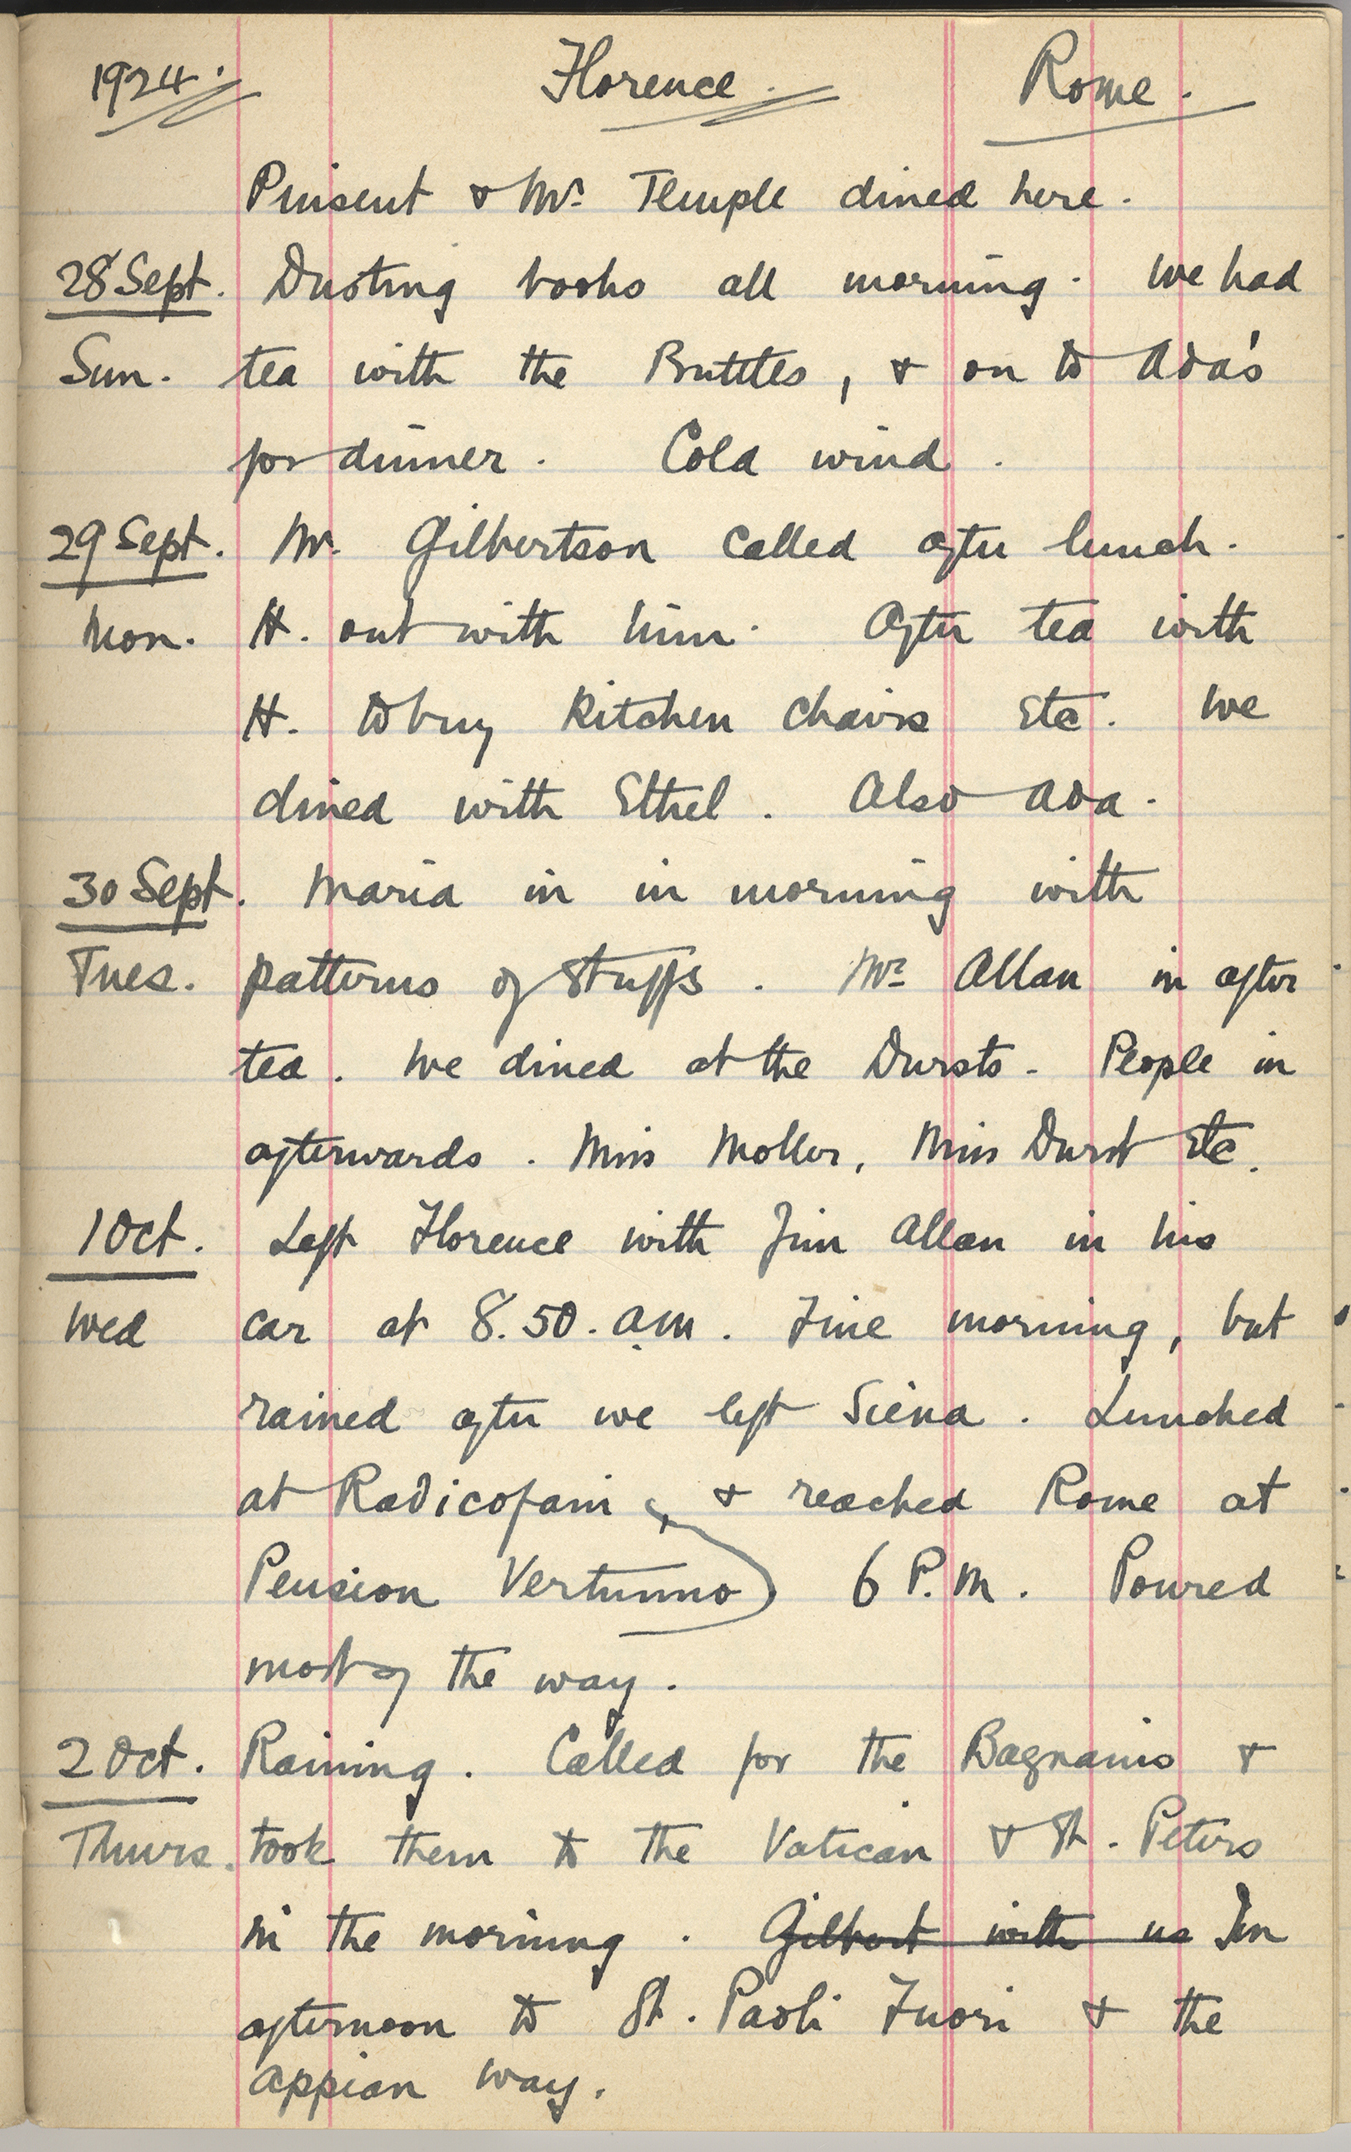 1924. Florence. Rome.
Pinsent & Mr. Temple dined here.
28 Sept. Dusting books all morning. We had
Sun. tea with the Buttles, & on to Ada's
for dinner. Cold wind.
29 Sept. Mr. Gilbertson called after lunch.
Mon. H. out with him. After tea with
H. to buy kitchen chairs etc. We
dined with Ethel. Also Ada.
30 Sept. Maria in in morning with
Tues. patterns of stuffs. Mr. Allan in after
tea. We dined at the Dursts. People in
afterwards. Miss Moller, Miss Durst etc.
1 Oct. Left Florence with Jim Allan in his
Wed car at 8.50. am. Fine morning, but
rained after we left Siena. Lunched
at Radicofani, & reached Rome at
Pension Vertunno) 6 P.M. Poured
most of the way.
2 Oct. Raining. Called for the Bagnanis &
Thurs. took them to the Vatican & St. Peters
in the morning. Gilbert with us In
afternoon to St. Paoli Fuori & the
Appian Way.